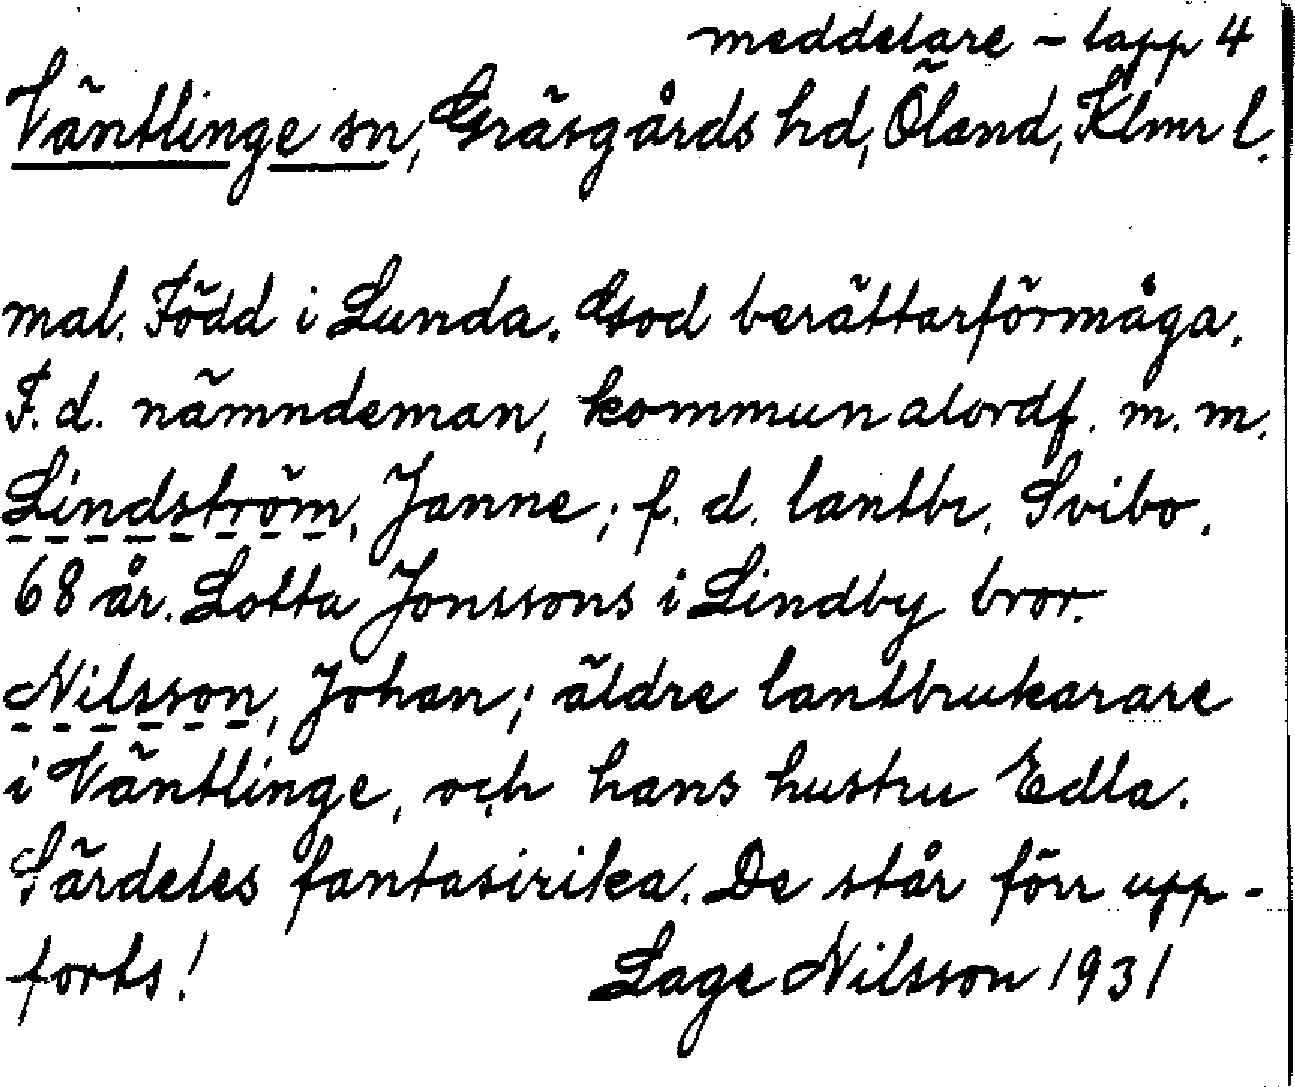 meddelare - lapp 4
Väntlinge sn, Gräsgårds hd, Öland, Klmr l.
mal. Född i Lunda. God berättarförmåga.
F.d. nämndeman, kommunalordf. m.m.
Lindström, Janne; f.d. lantbr. Svibo.
68 år. Lotta Jonssons i Lindby bror.
Nilsson, Johan; äldre lantbrukarare
i Väntlinge, och hans hustru Edla.
Särdeles fantasirika. De står förr upp-
forts! Lage Nilsson 1931